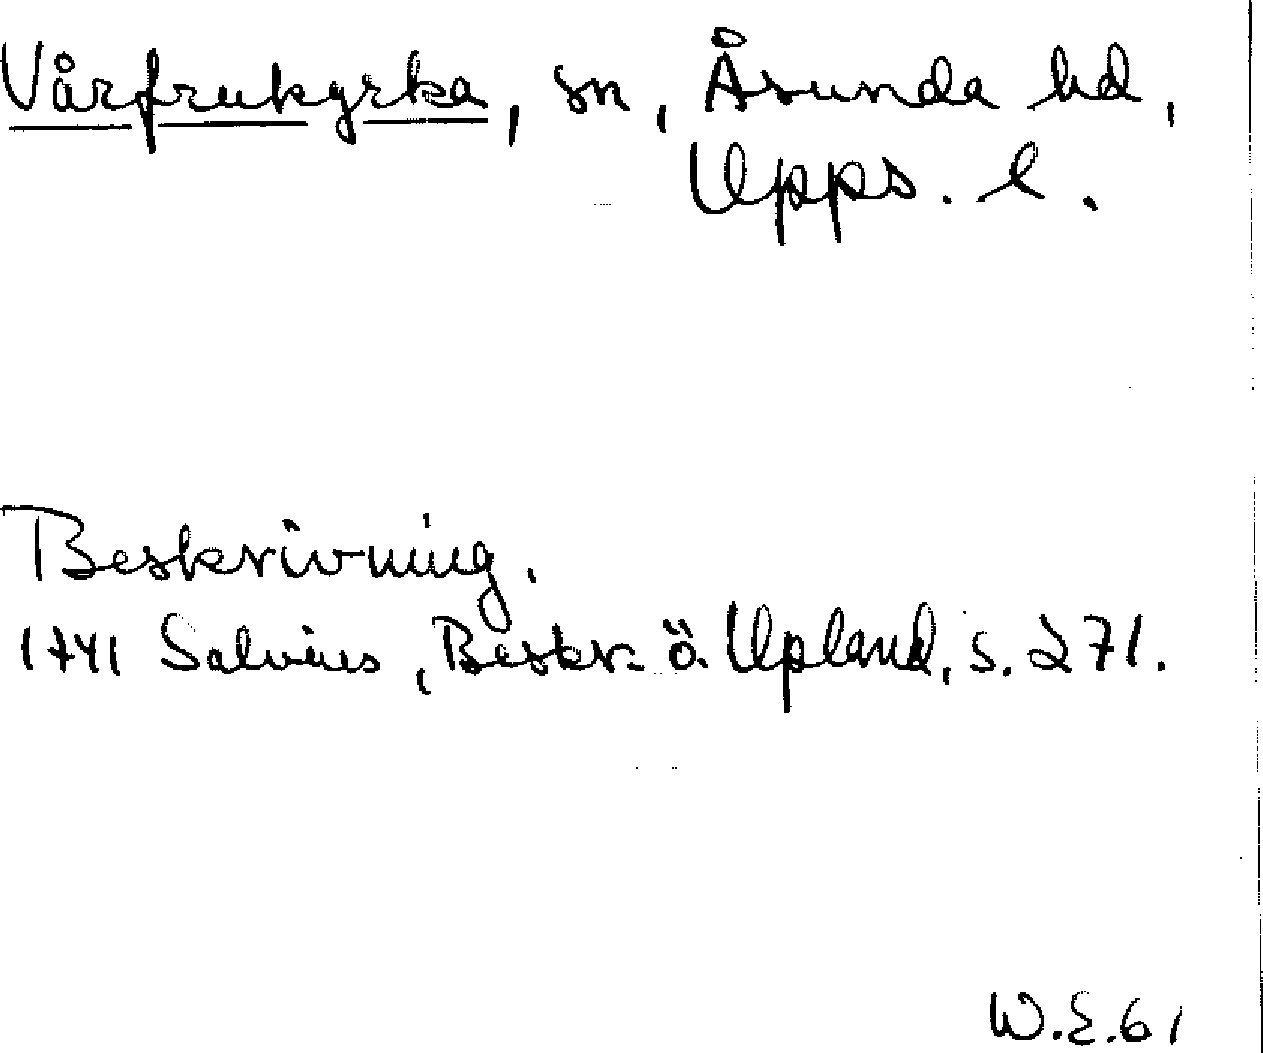 Vårfrukyrka, sn, Åsunda hd,
Upps. l.
Beskrivning.
1741 Salvius, Beskr. ö. Upland, s. 271.
W.E.61